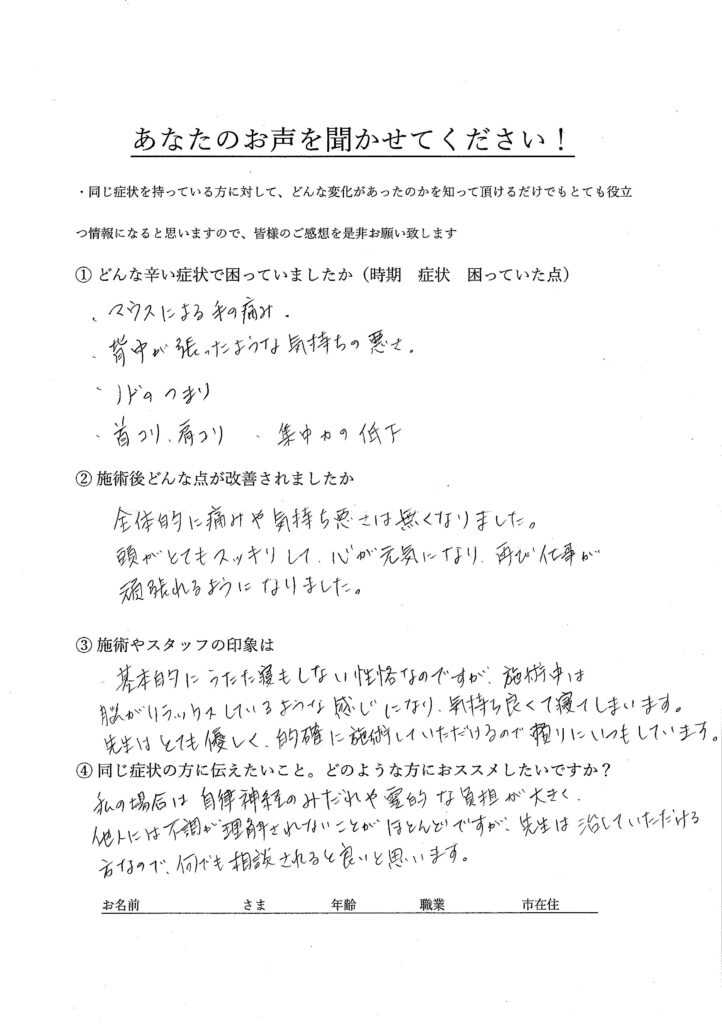 あなたのお声を聞かせてください！
・同じ症状を持っている方に対して、どんな変化があったのかを知って頂けるだけでもとても役立
つ情報になると思いますので、皆様のご感想を是非お願い致します
① どんな辛い症状で困っていましたか（時期　症状　困っていた点）
・マウスによる手の痛み．
・背中が張ったような気持ちの悪さ．
・ノドのつまり
・首コリ、肩コリ　・集中力の低下
② 施術後どんな点が改善されましたか
全体的に痛みや気持ち悪さは無くなりました。
頭がとてもスッキリして、心が元気になり、再び仕事が
頑張れるようになりました。
③ 施術やスタッフの印象は
基本的にうたた寝もしない性格なのですが、施術中は
脳がリラックスしているような感じになり、気持ち良くて寝てしまいます。
先生はとても優しく、的確に施術していただけるので頼りにいつもしています。
④ 同じ症状の方に伝えたいこと。どのような方におススメしたいですか？
私の場合は自律神経のみだれや霊的な負担が大きく、
他人には不調が理解されないことがほとんどですが、先生は治していただける
方なので、何でも相談されると良いと思います。
お名前　さま　年齢　職業　市在住